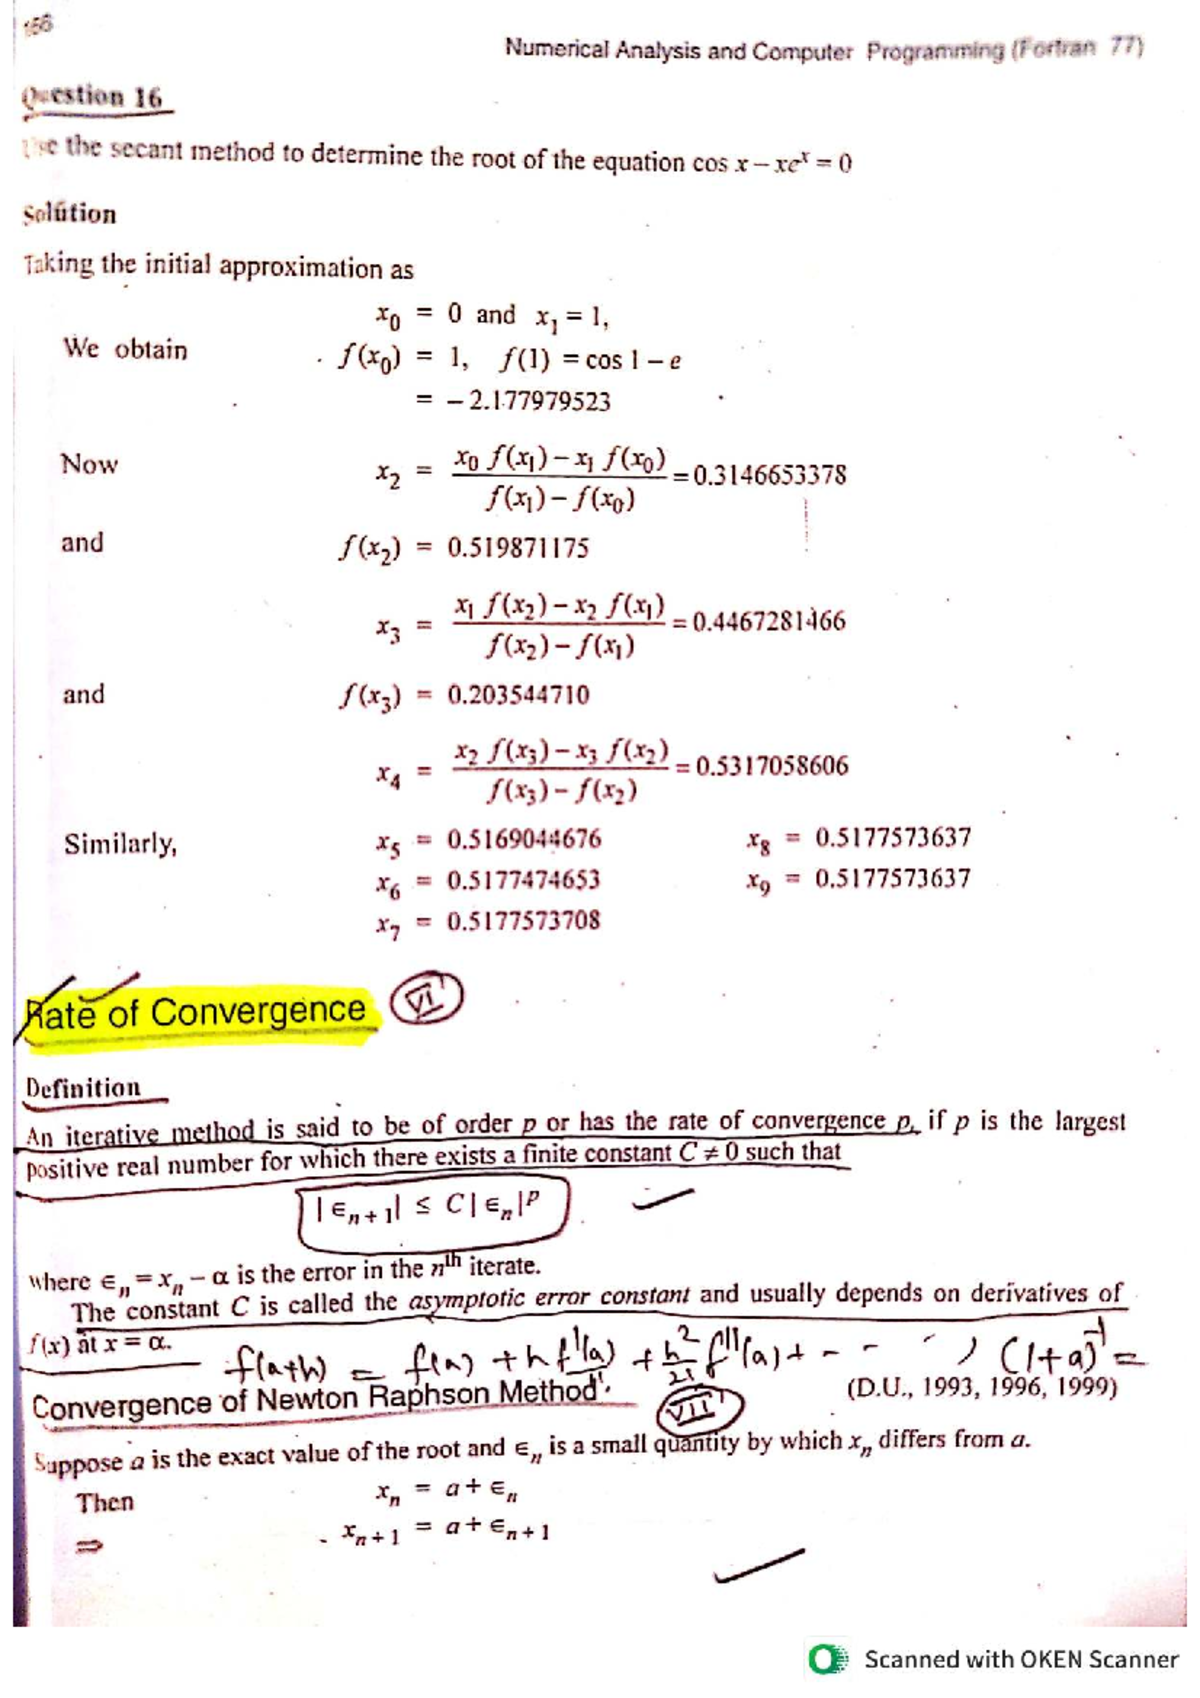 166
Numerical Analysis and Computer Programming (Fortran 77)
Question 16
Use the secant method to determine the root of the equation cos x – xeˣ = 0
Solution
Taking the initial approximation as
x₀ = 0 and x₁ = 1,
We obtain f(x₀) = 1, f(1) = cos 1 – e
= – 2.177979523
Now x₂ = (x₀ f(x₁) – x₁ f(x₀)) / (f(x₁) – f(x₀)) = 0.3146653378
and f(x₂) = 0.519871175
x₃ = (x₁ f(x₂) – x₂ f(x₁)) / (f(x₂) – f(x₁)) = 0.4467281466
and f(x₃) = 0.203544710
x₄ = (x₂ f(x₃) – x₃ f(x₂)) / (f(x₃) – f(x₂)) = 0.5317058606
Similarly, x₅ = 0.5169044676 x₈ = 0.5177573637
x₆ = 0.5177474653 x₉ = 0.5177573637
x₇ = 0.5177573708
Rate of Convergence VI
Definition
An iterative method is said to be of order p or has the rate of convergence p, if p is the largest
positive real number for which there exists a finite constant C ≠ 0 such that
|∈ₙ₊₁| ≤ C|∈ₙ|ᵖ
where ∈ₙ = xₙ – α is the error in the nᵗʰ iterate.
The constant C is called the asymptotic error constant and usually depends on derivatives of
f(x) at x = α.
f(a+h) = f(a) + h f'(a) + h²/2! f''(a) + - - - , (1+a)⁻¹ =
Convergence of Newton Raphson Method. VII (D.U., 1993, 1996, 1999)
Suppose a is the exact value of the root and ∈ₙ is a small quantity by which xₙ differs from a.
Then xₙ = a + ∈ₙ
⇒ xₙ₊₁ = a + ∈ₙ₊₁
Scanned with OKEN Scanner